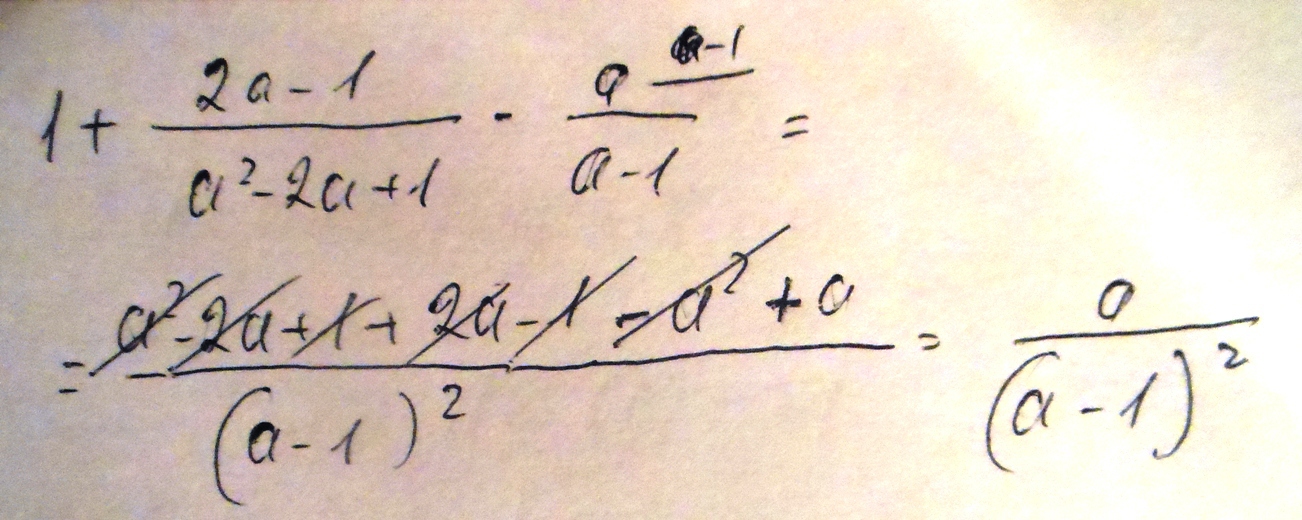 1 + \frac{2a-1}{a^2-2a+1} - \frac{a^{\underline{a-1}}}{a-1} =
= \frac{a^2-2a+1+2a-1-a^2+a}{(a-1)^2} = \frac{a}{(a-1)^2}